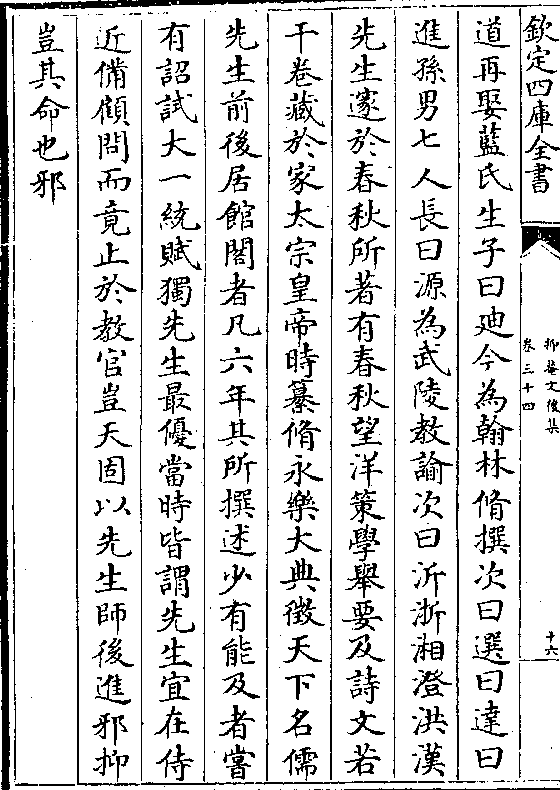 欽定四庫全書
抑菴文後集
卷三十四
十六
道再娶藍氏生子曰廸今為翰林脩撰次曰選曰達曰
進孫男七人長曰源為武陵教諭次曰沂浙湘澄洪漢
先生邃於春秋所著有春秋望洋策學舉要及詩文若
干卷藏於家太宗皇帝時纂脩永樂大典徵天下名儒
先生前後居館閣者凡六年其所撰述少有能及者嘗
有詔試大一統賦獨先生最優當時皆謂先生宜在侍
近備顧問而竟止於教官豈天固以先生師後進邪抑
豈其命也邪